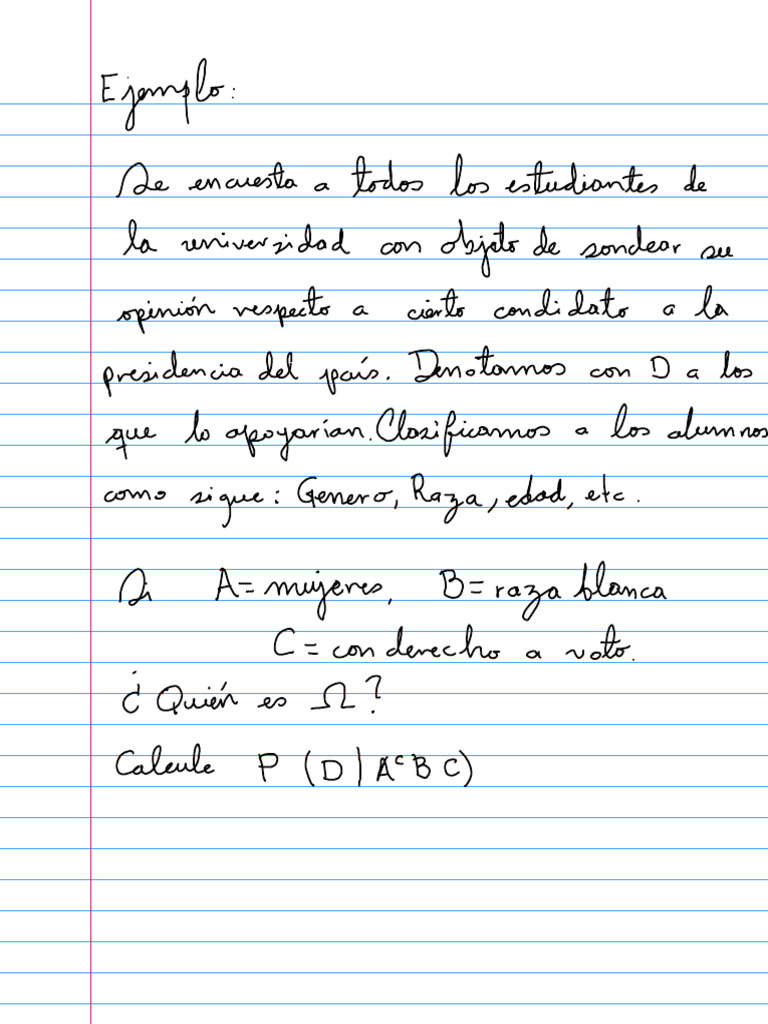 Ejemplo:
Se encuesta a todos los estudiantes de
la universidad con objeto de sondear su
opinión respecto a cierto candidato a la
presidencia del país. Denotamos con D a los
que lo apoyarían. Clasificamos a los alumnos
como sigue: Genero, Raza, edad, etc.
Si A = mujeres, B = raza blanca
C = con derecho a voto.
¿Quién es Ω?
Calcule P (D | AᶜB C)